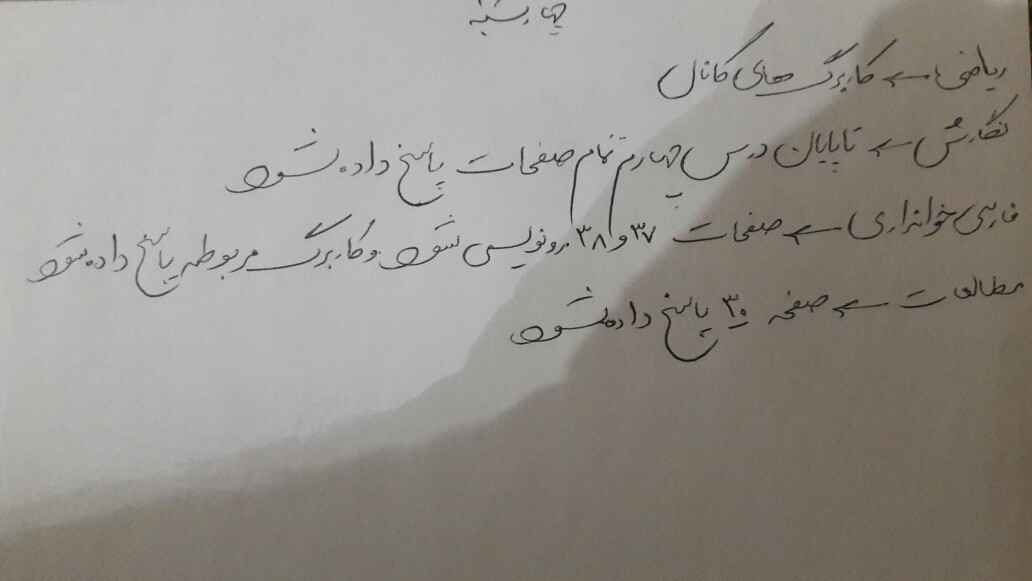 چهارشنبه
ریاضی ← کاربرگ های کانال
نگارش ← تا پایان درس چهارم تمام صفحات پاسخ داده شود
فارسی خوانداری ← صفحات ۳۷ و ۳۸ رونویسی شود و کاربرگ مربوطه پاسخ داده شود
مطالعات ← صفحه ۳۰ پاسخ داده شود